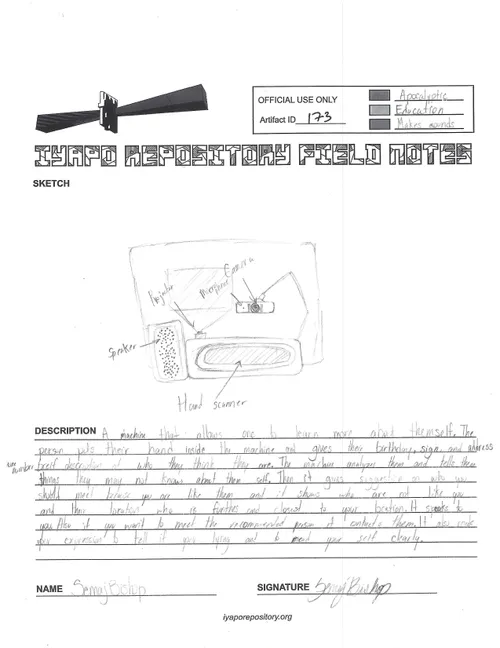 OFFICIAL USE ONLY
Artifact ID 173
Apocalyptic
Education
Makes sounds
IYAPO REPOSITORY FIELD NOTES
SKETCH
Projector
Microphone
Camera
Speaker
Hand scanner
DESCRIPTION A machine that allows one to learn more about themself. The
person puts their hand inside the machine and gives their birthday, sign, and address
number breif description of who they think they are. The machine analyzes them and tells them
things they may not know about them self. Then it gives suggestion on who you
should meet because you are like them and it shows who are not like you
and their location who is furthest and closest to your location. It speaks to
you. Also if you want to meet the recommended person it contacts them. It also reads
your expression to tell if your lying and to read your self clearly.
NAME Semaj
SIGNATURE Semaj
iyaporepository.org